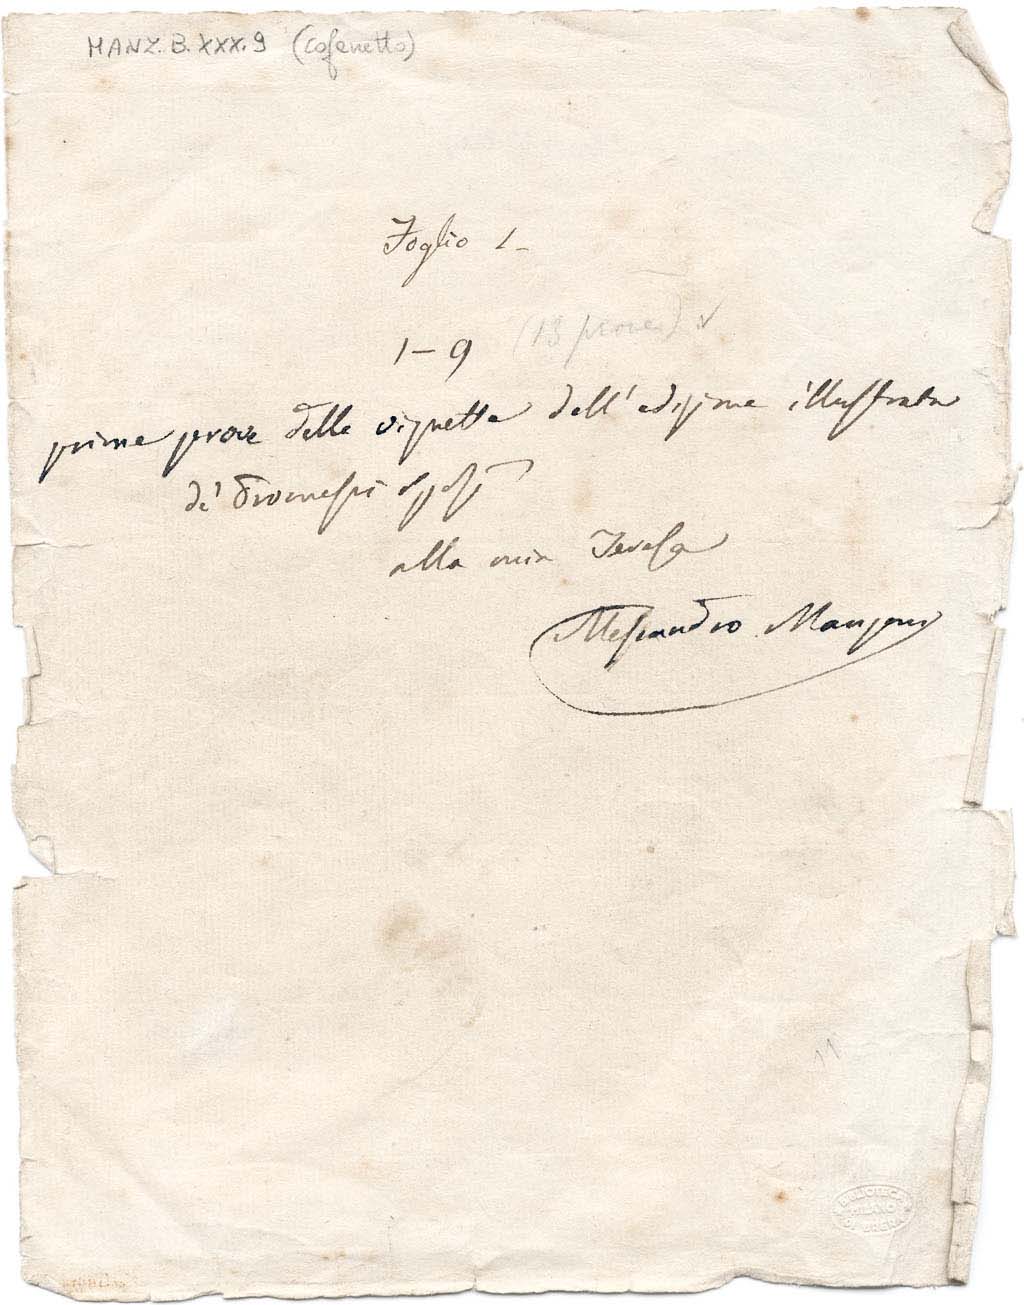 MANZ. B. XXX. 9 (Cofanetto)
Foglio 1-
1-9 (13 prove) ✓
prime prove delle vignette dell'edizione illustrata
de' Promessi Sposi
alla mia Teresa
Alessandro Manzoni
11
BIBLIOTECA
MILANO
DI BRERA